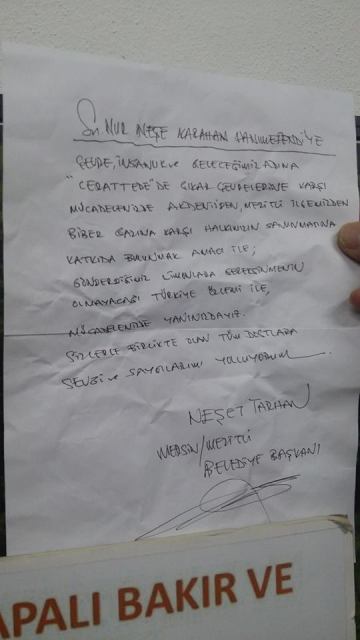 Sn NUR NEŞE KARAHAN HANIMEFENDİYE
ÇEVRE, İNSANLIK ve GELECEĞİMİZ ADINA
"CERATTEPE'DE ÇIKAR ÇEVRELERİNE KARŞI
MÜCADELENİZDE AKDENİZDEN, MEZİTLİ İLÇEMİZDEN
BİBER GAZINA KARŞI HALKIMIZIN SAVUNMASINA
KATKIDA BULUNMAK AMACI İLE;
GÖNDERDİĞİMİZ LİMONLARA GEREKSİNMENİN
OLMAYACAĞI TÜRKİYE ÖZLEMİ İLE,
MÜCADELENİZDE YANINIZDAYIZ.
SİZLERLE BİRLİKTE OLAN TÜM DOSTLARA
SEVGİ ve SAYGILARIMI YOLLUYORUM
NEŞET TARHAN
MERSİN/MEZİTLİ
BELEDİYE BAŞKANI
APALI BAKIR VE